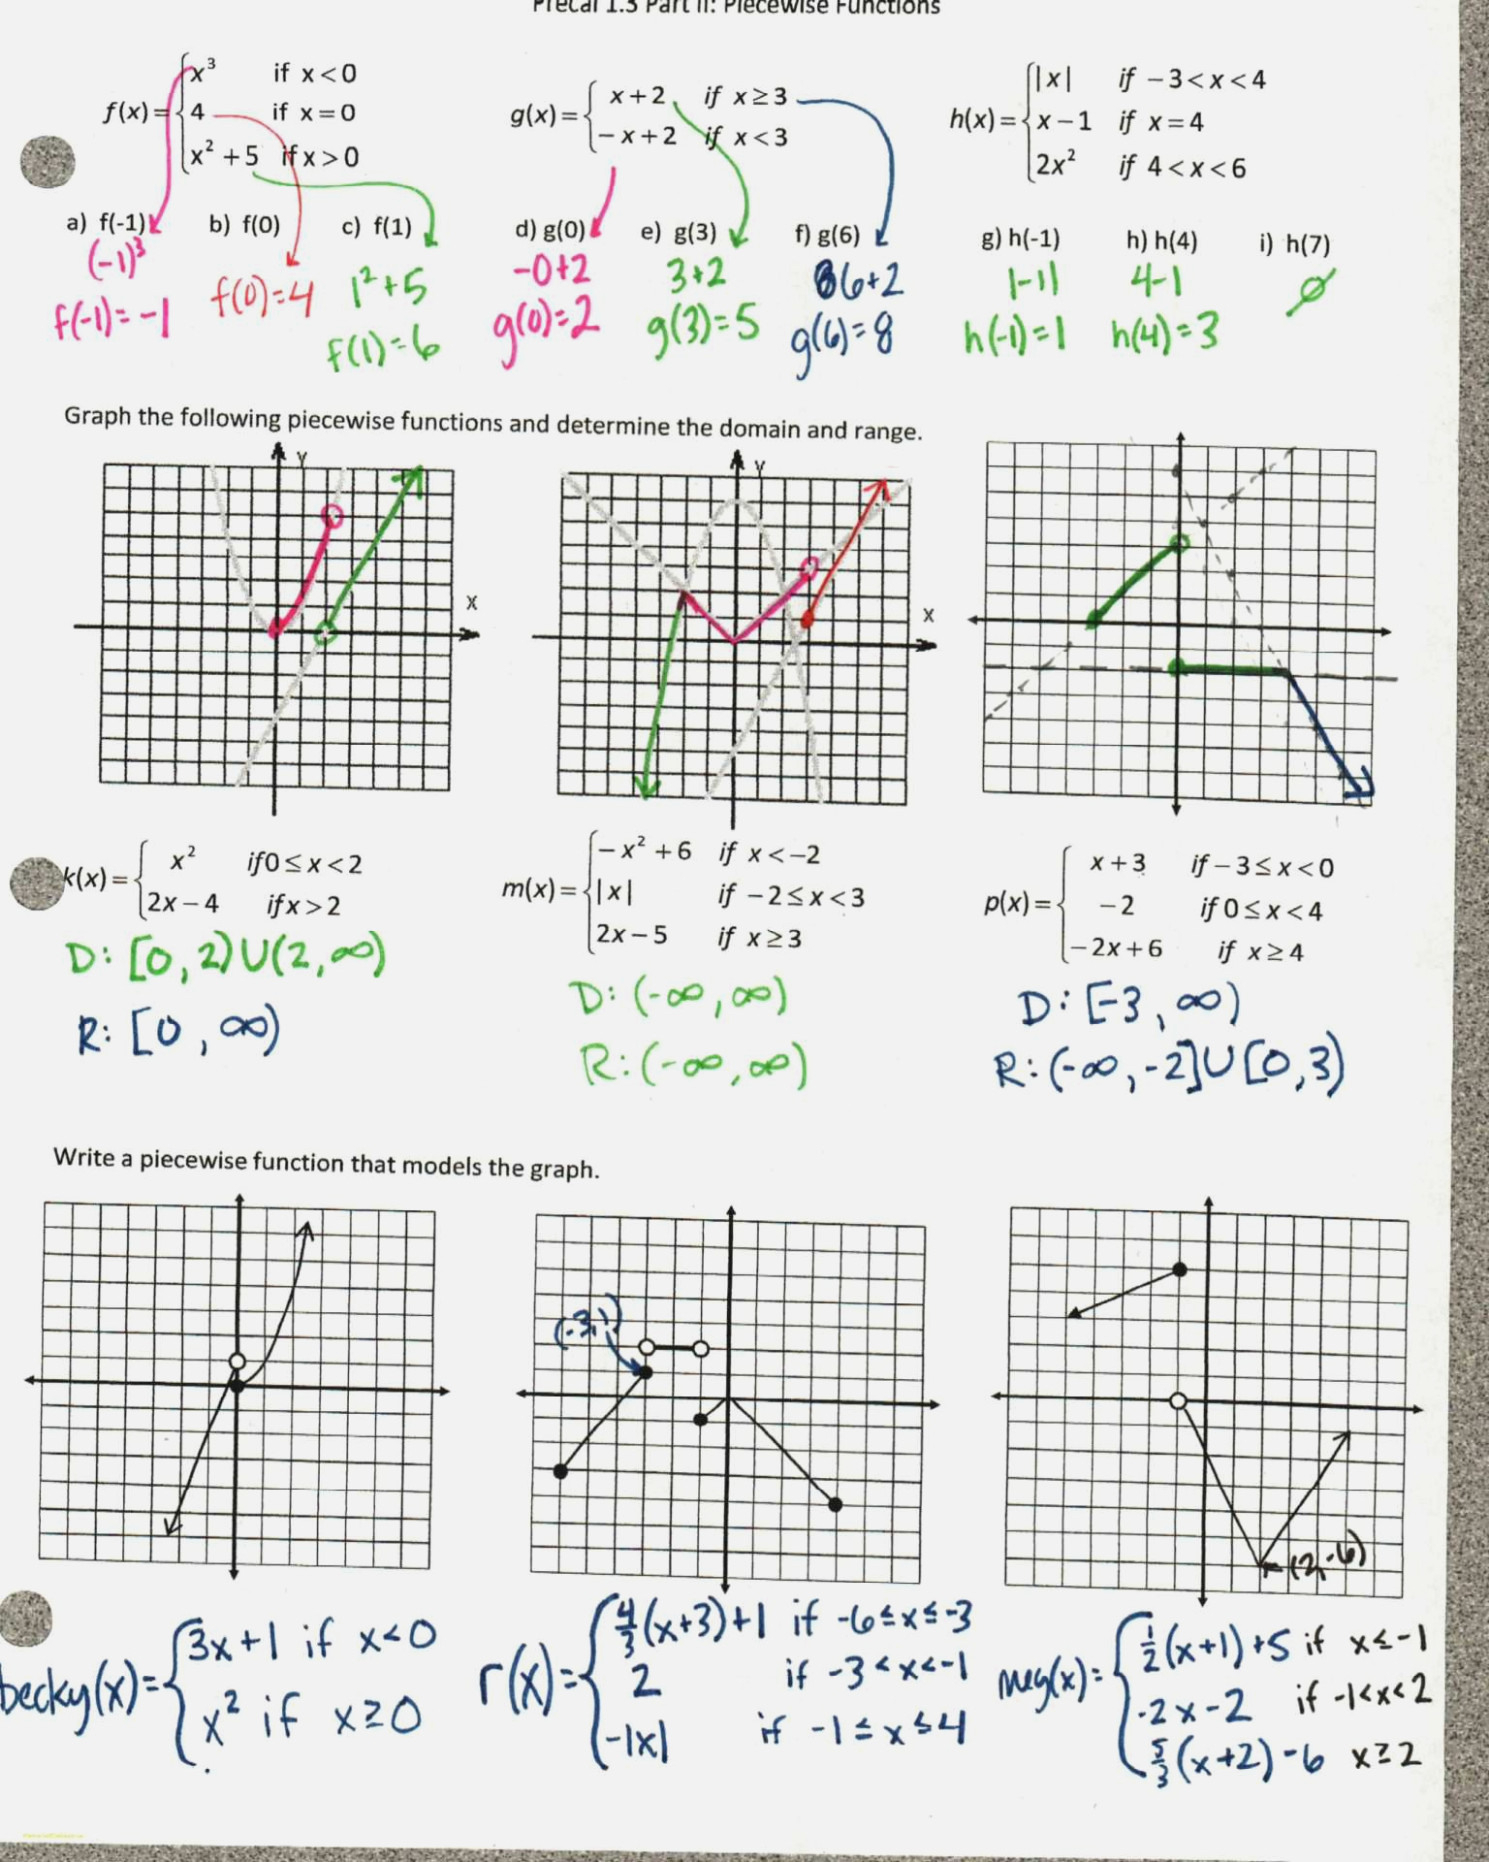 Precal 1.3 Part II: Piecewise Functions
f(x) = { x³ if x < 0
4 if x = 0
x² + 5 if x > 0
g(x) = { x + 2 if x ≥ 3
− x + 2 if x < 3
h(x) = { |x| if − 3 < x < 4
x − 1 if x = 4
2x² if 4 < x < 6
a) f(-1) b) f(0) c) f(1) d) g(0) e) g(3) f) g(6) g) h(-1) h) h(4) i) h(7)
(-1)³ f(0)=4 1²+5 -0+2 3+2 6+2 |-1| 4-1 ∅
f(-1)=-1 f(1)=6 g(0)=2 g(3)=5 g(6)=8 h(-1)=1 h(4)=3
Graph the following piecewise functions and determine the domain and range.
Y
X
Y
X
k(x) = { x² if 0 ≤ x < 2
2x − 4 if x > 2
D: [0, 2) U (2, ∞)
R: [0, ∞)
m(x) = { − x² + 6 if x < −2
|x| if − 2 ≤ x < 3
2x − 5 if x ≥ 3
D: (-∞, ∞)
R: (-∞, ∞)
p(x) = { x + 3 if − 3 ≤ x < 0
− 2 if 0 ≤ x < 4
− 2x + 6 if x ≥ 4
D: [-3, ∞)
R: (-∞, -2] U [0, 3)
Write a piecewise function that models the graph.
(-3,1)
(2,-6)
becky(x) = { 3x+1 if x<0
x² if x≥0
r(x) = { 4/3(x+3)+1 if -6≤x≤-3
2 if -3<x<-1
-|x| if -1≤x≤4
meg(x) = { 1/2(x+1)+5 if x≤-1
-2x-2 if -1<x<2
5/3(x+2)-6 x≥2